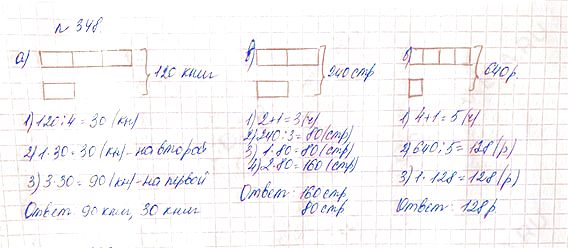 № 348
а) 120 книг
1) 120:4=30 (кн)
2) 1·30=30 (кн)-на второй
3) 3·30=90 (кн)-на первой
Ответ 90 книг, 30 книг
в) 240 стр
1) 2+1=3 (ч)
2) 240:3=80 (стр)
3) 1·80=80 (стр)
4) 2·80=160 (стр)
Ответ: 160 стр
80 стр
б) 640 р.
1) 4+1=5 (ч)
2) 640:5=128 (р)
3) 1·128=128 (р)
Ответ: 128 р